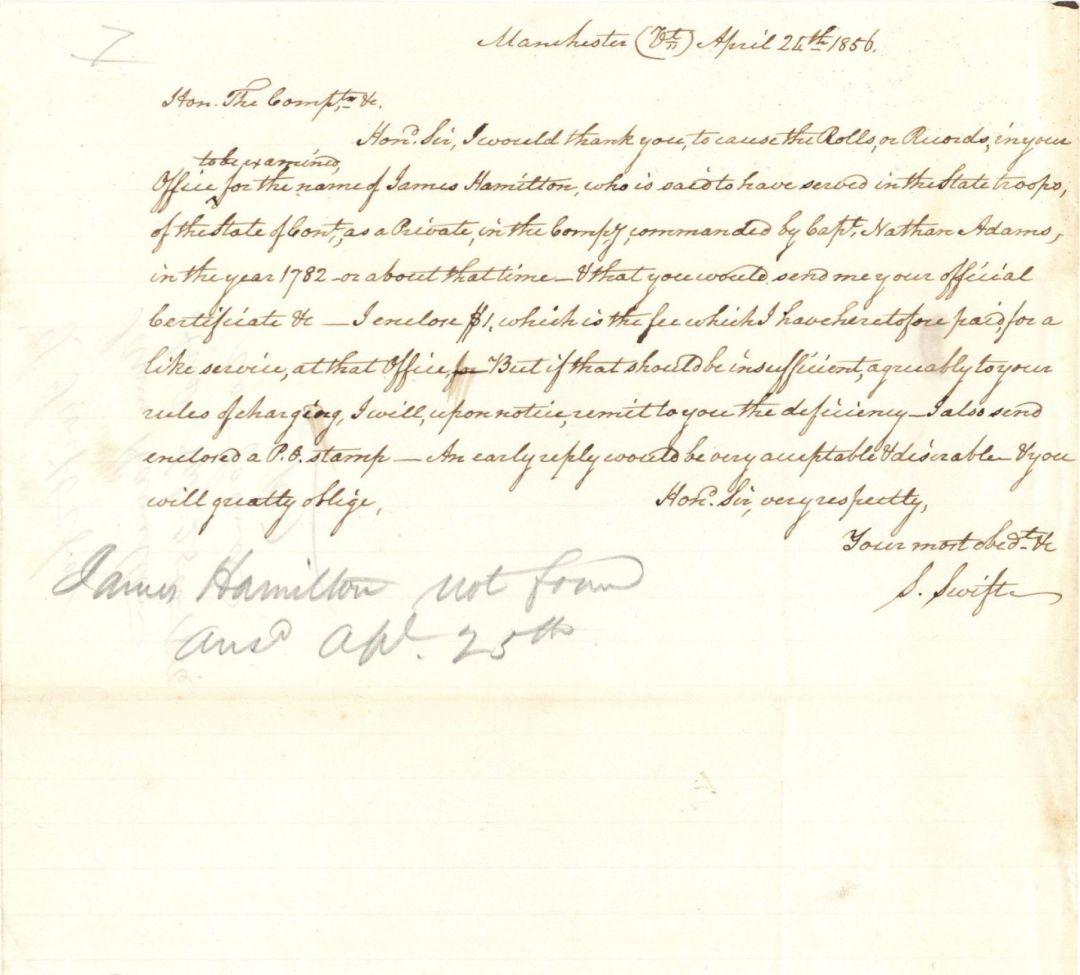 7
Manchester (Vt) April 24th 1856.
Hon. The Compt.r &c.
Hond. Sir, I would thank you, to cause the Rolls, or Records, in your
to be examined,
Office, for the name of James Hamilton, who is said to have served in the State troops,
of the State of Cont, as a Private, in the Compy, commanded by Capt. Nathan Adams,
in the year 1782 - or about that time - & that you would send me your official
Certificate &c — I enclose $1. which is the fee which I have heretofore paid, for a
like service, at that Office, But if that should be insufficient, agreeably to your
rules of charging, I will, upon notice, remit to you the deficiency — I also send
enclosed a P.O. stamp — An early reply would be very acceptable & desirable - & you
will greatly oblige,
Hond. Sir, very respectly,
Your most obedt. &c
S. Swift
James Hamilton not found
Ansd Apl. 25th